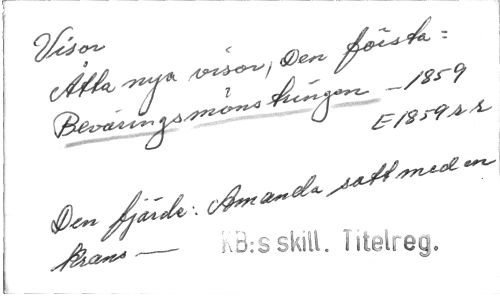 Visor
Åtta nya visor, Den första:
Beväringsmönstringen – 1859
E1859 r r
Den fjärde: Amanda satt med en
krans —
KB:s skill. Titelreg.